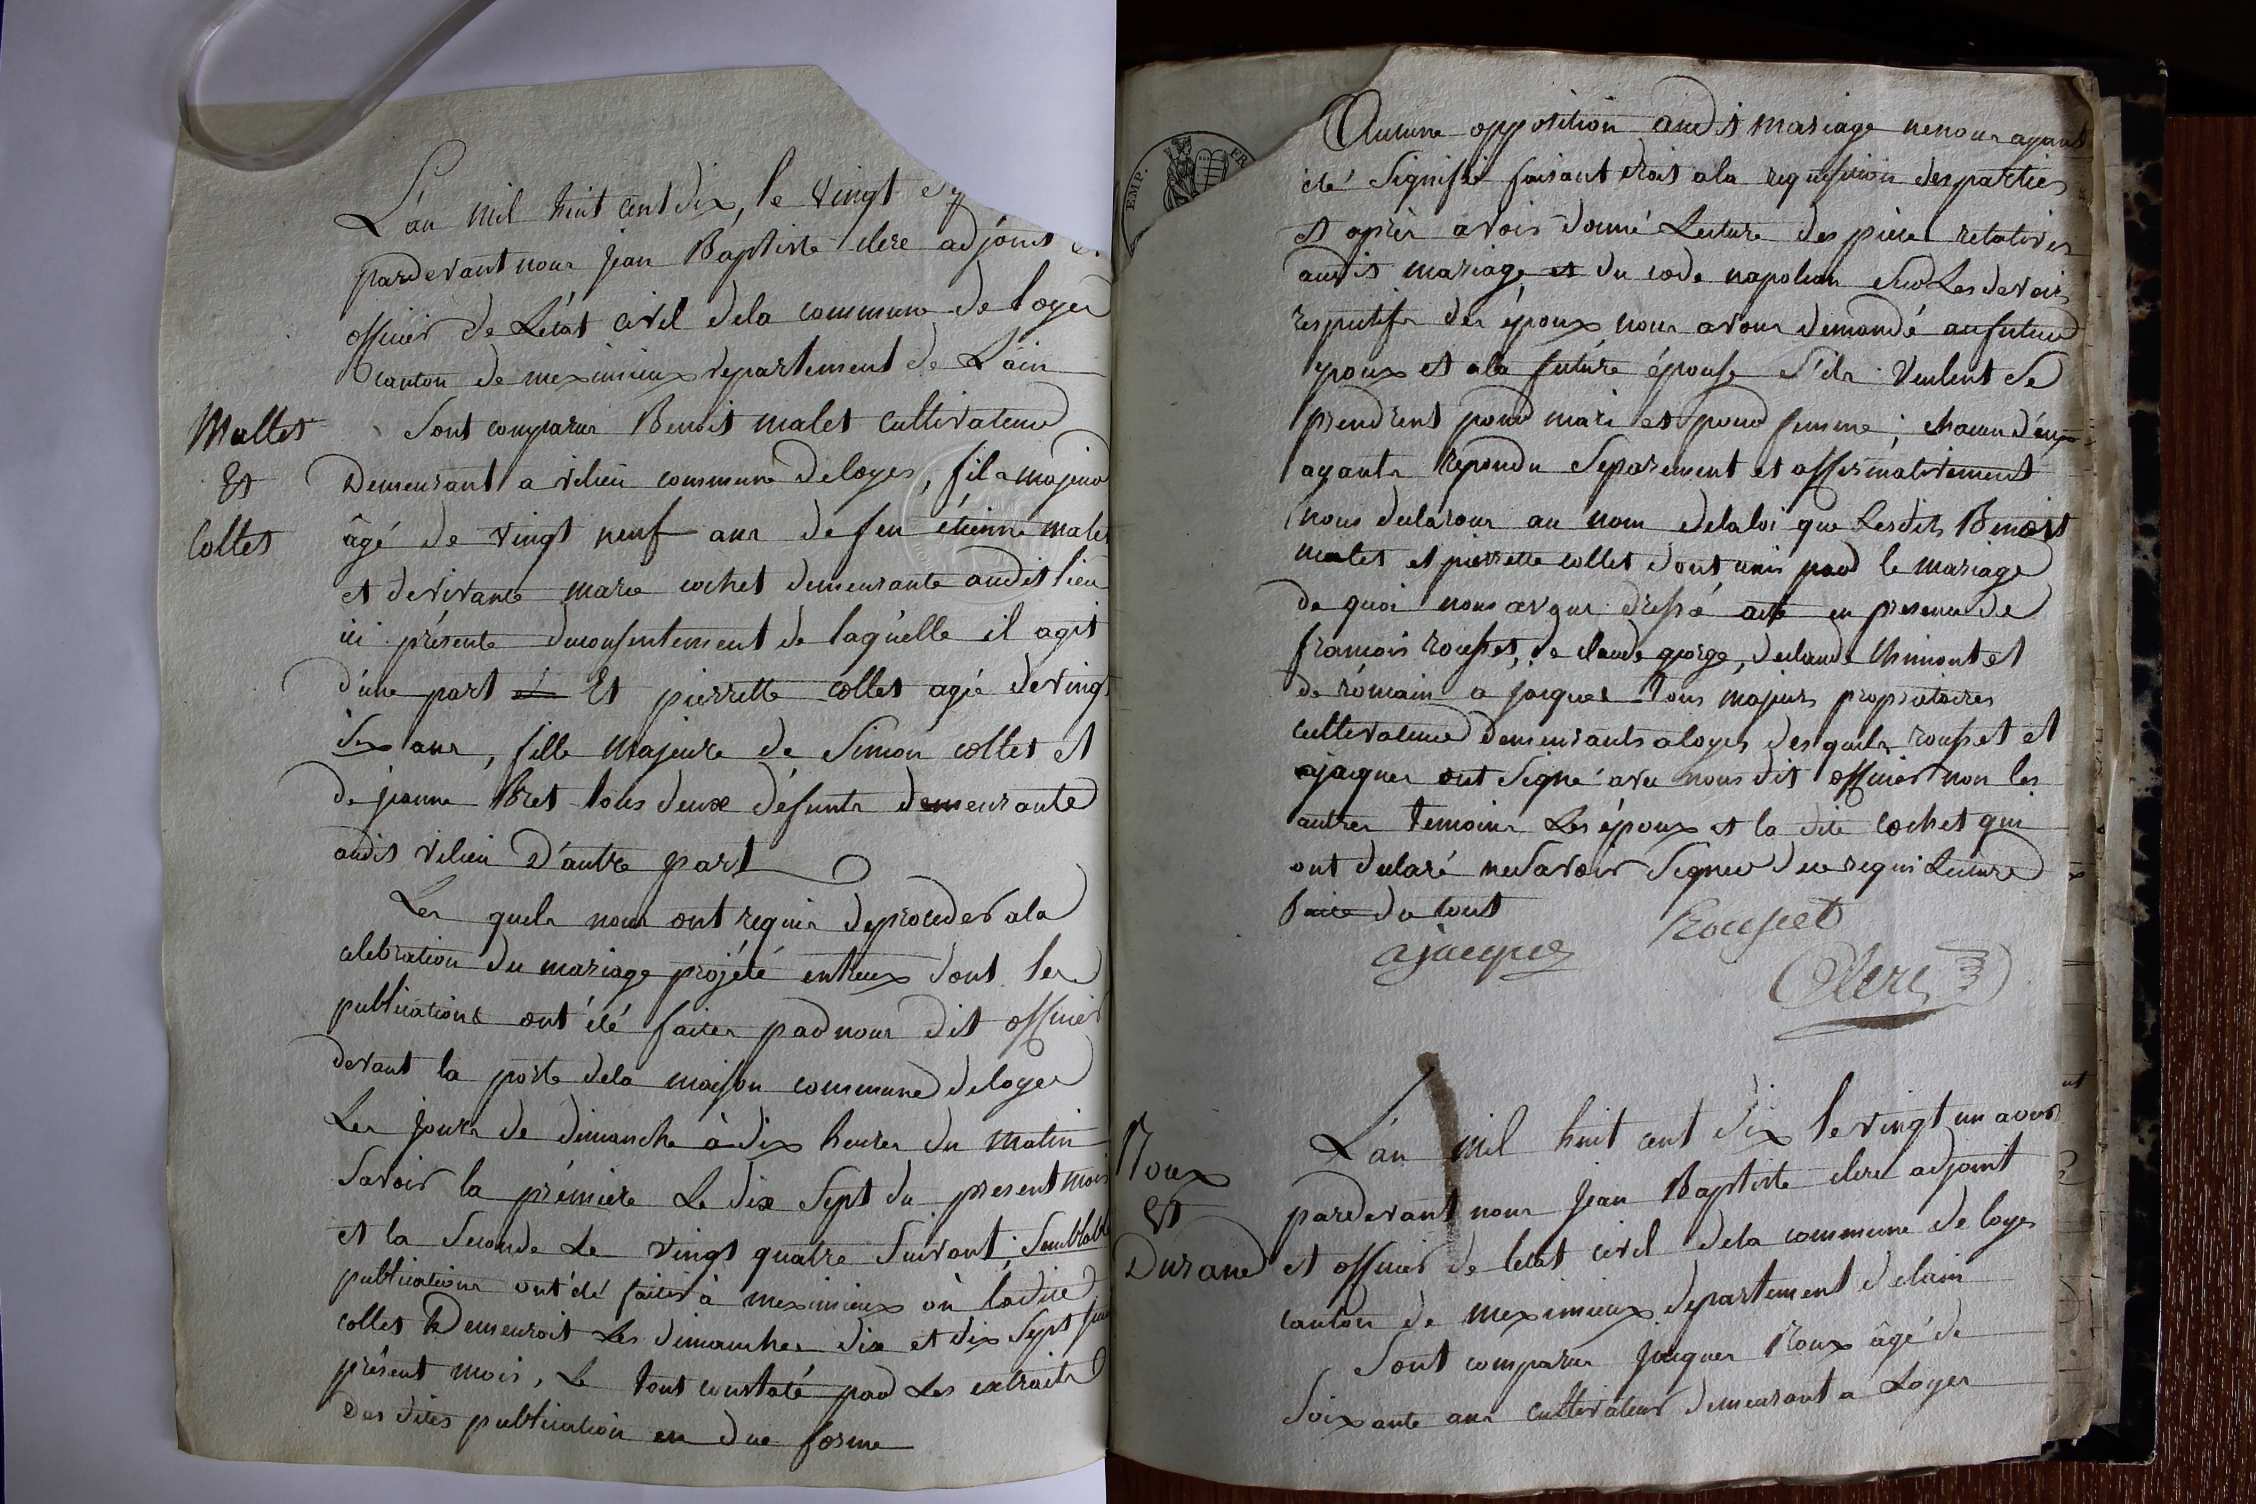 L'an mil huit cent dix, le vingt
pardevant nous jean Baptiste clerc adjoint
officier de L'état civil dela commune de loyes
canton de meximieux departement de L'ain
Mallet
Et
Collet
Sont comparus Benoit malet Cultivateur
Demeurant a vilieu commune deloyes, fils majeur
âgé de vingt neuf ans de feu étienne malet
et devivante marie cochet demeurante audit lieu
ici présente duconsentement de laquelle il agit
d'une part Et pierrette collet agée devingt
six ans, fille majeure de Simon collet et
de jeanne Bret tous deux défunts demeurante
audit vilieu D'autre part
Les quels nous ont requis deproceder ala
celebration du mariage projété entreux dont les
publications ont été faites par nous dit officier
devant la porte dela maison commune deloyes
Les jours de dimanche à dix heures du matin
Savoir la prémiere Le dix Sept du present mois
et la Seconde Le vingt quatre Suivant; Semblables
publications ont été faites à meximieux où ladite
collet Demeuroit Les dimanches dix et dix Sept
présent mois, Le tout constaté par Les extraits
Des dites publication en due forme
EMP. FR
Aucune opposition audit mariage nenous ayant
été Signifié faisant droit ala requisition desparties
et après avoir donné Lecture des pièces relatives
audit mariage et du code napoléon Sur Les devoirs
respectifs des époux nous avons demandé aufutur
époux et ala future épouse S'ils veulent Se
prendrent pour mari et pour femme; chacun d'eux
ayants repondu Séparement et affirmativement
nous declarons au nom delaloi que Lesdits Benoit
malet et pierrette collet Sont unis par le mariage
de quoi nous avons dressé acte en presence de
francois rousset, de claude george, declaude Chimont et
de romain a jacques Tous majeurs proprietaires
cultivateurs demeurants a loyes desquels rousset et
ajacques ont Signé avec nous dit officier non les
autres temoins Les époux et la dite cochet qui
ont declaré neSavoir Signer dece requis Lecture
faite du tout
ajacques Rousset
Clerc
Roux
Et
Durand
L'an mil huit cent dix le vingt un avril
pardevant nous jean Baptiste clerc adjoint
et officier de letat civil dela commune de loyes
canton de meximieux departement delain
Sont comparus jacques Roux âgé de
Soixante ans cultivateur demeurant a Loyes